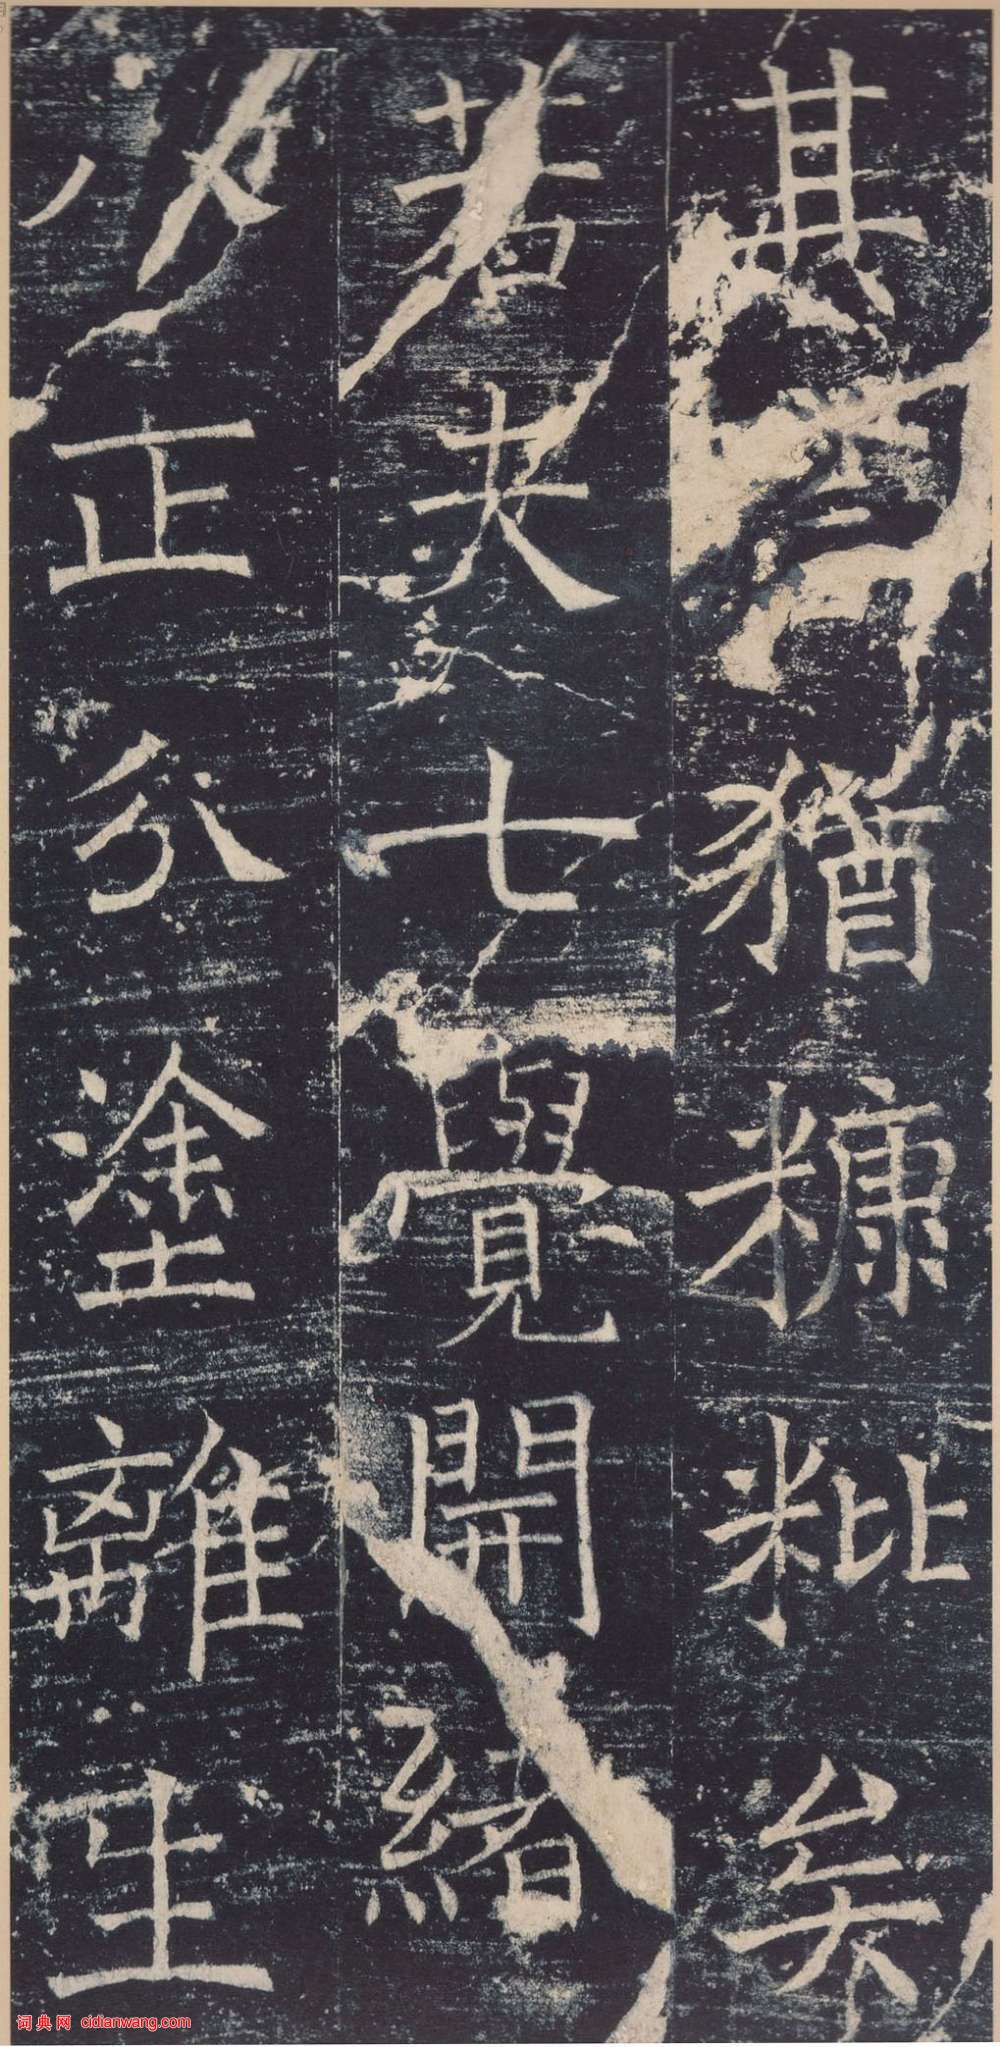 其言猶糠粃矣
若夫七覺開緒
八正分塗離生
词典网 cidianwang.com